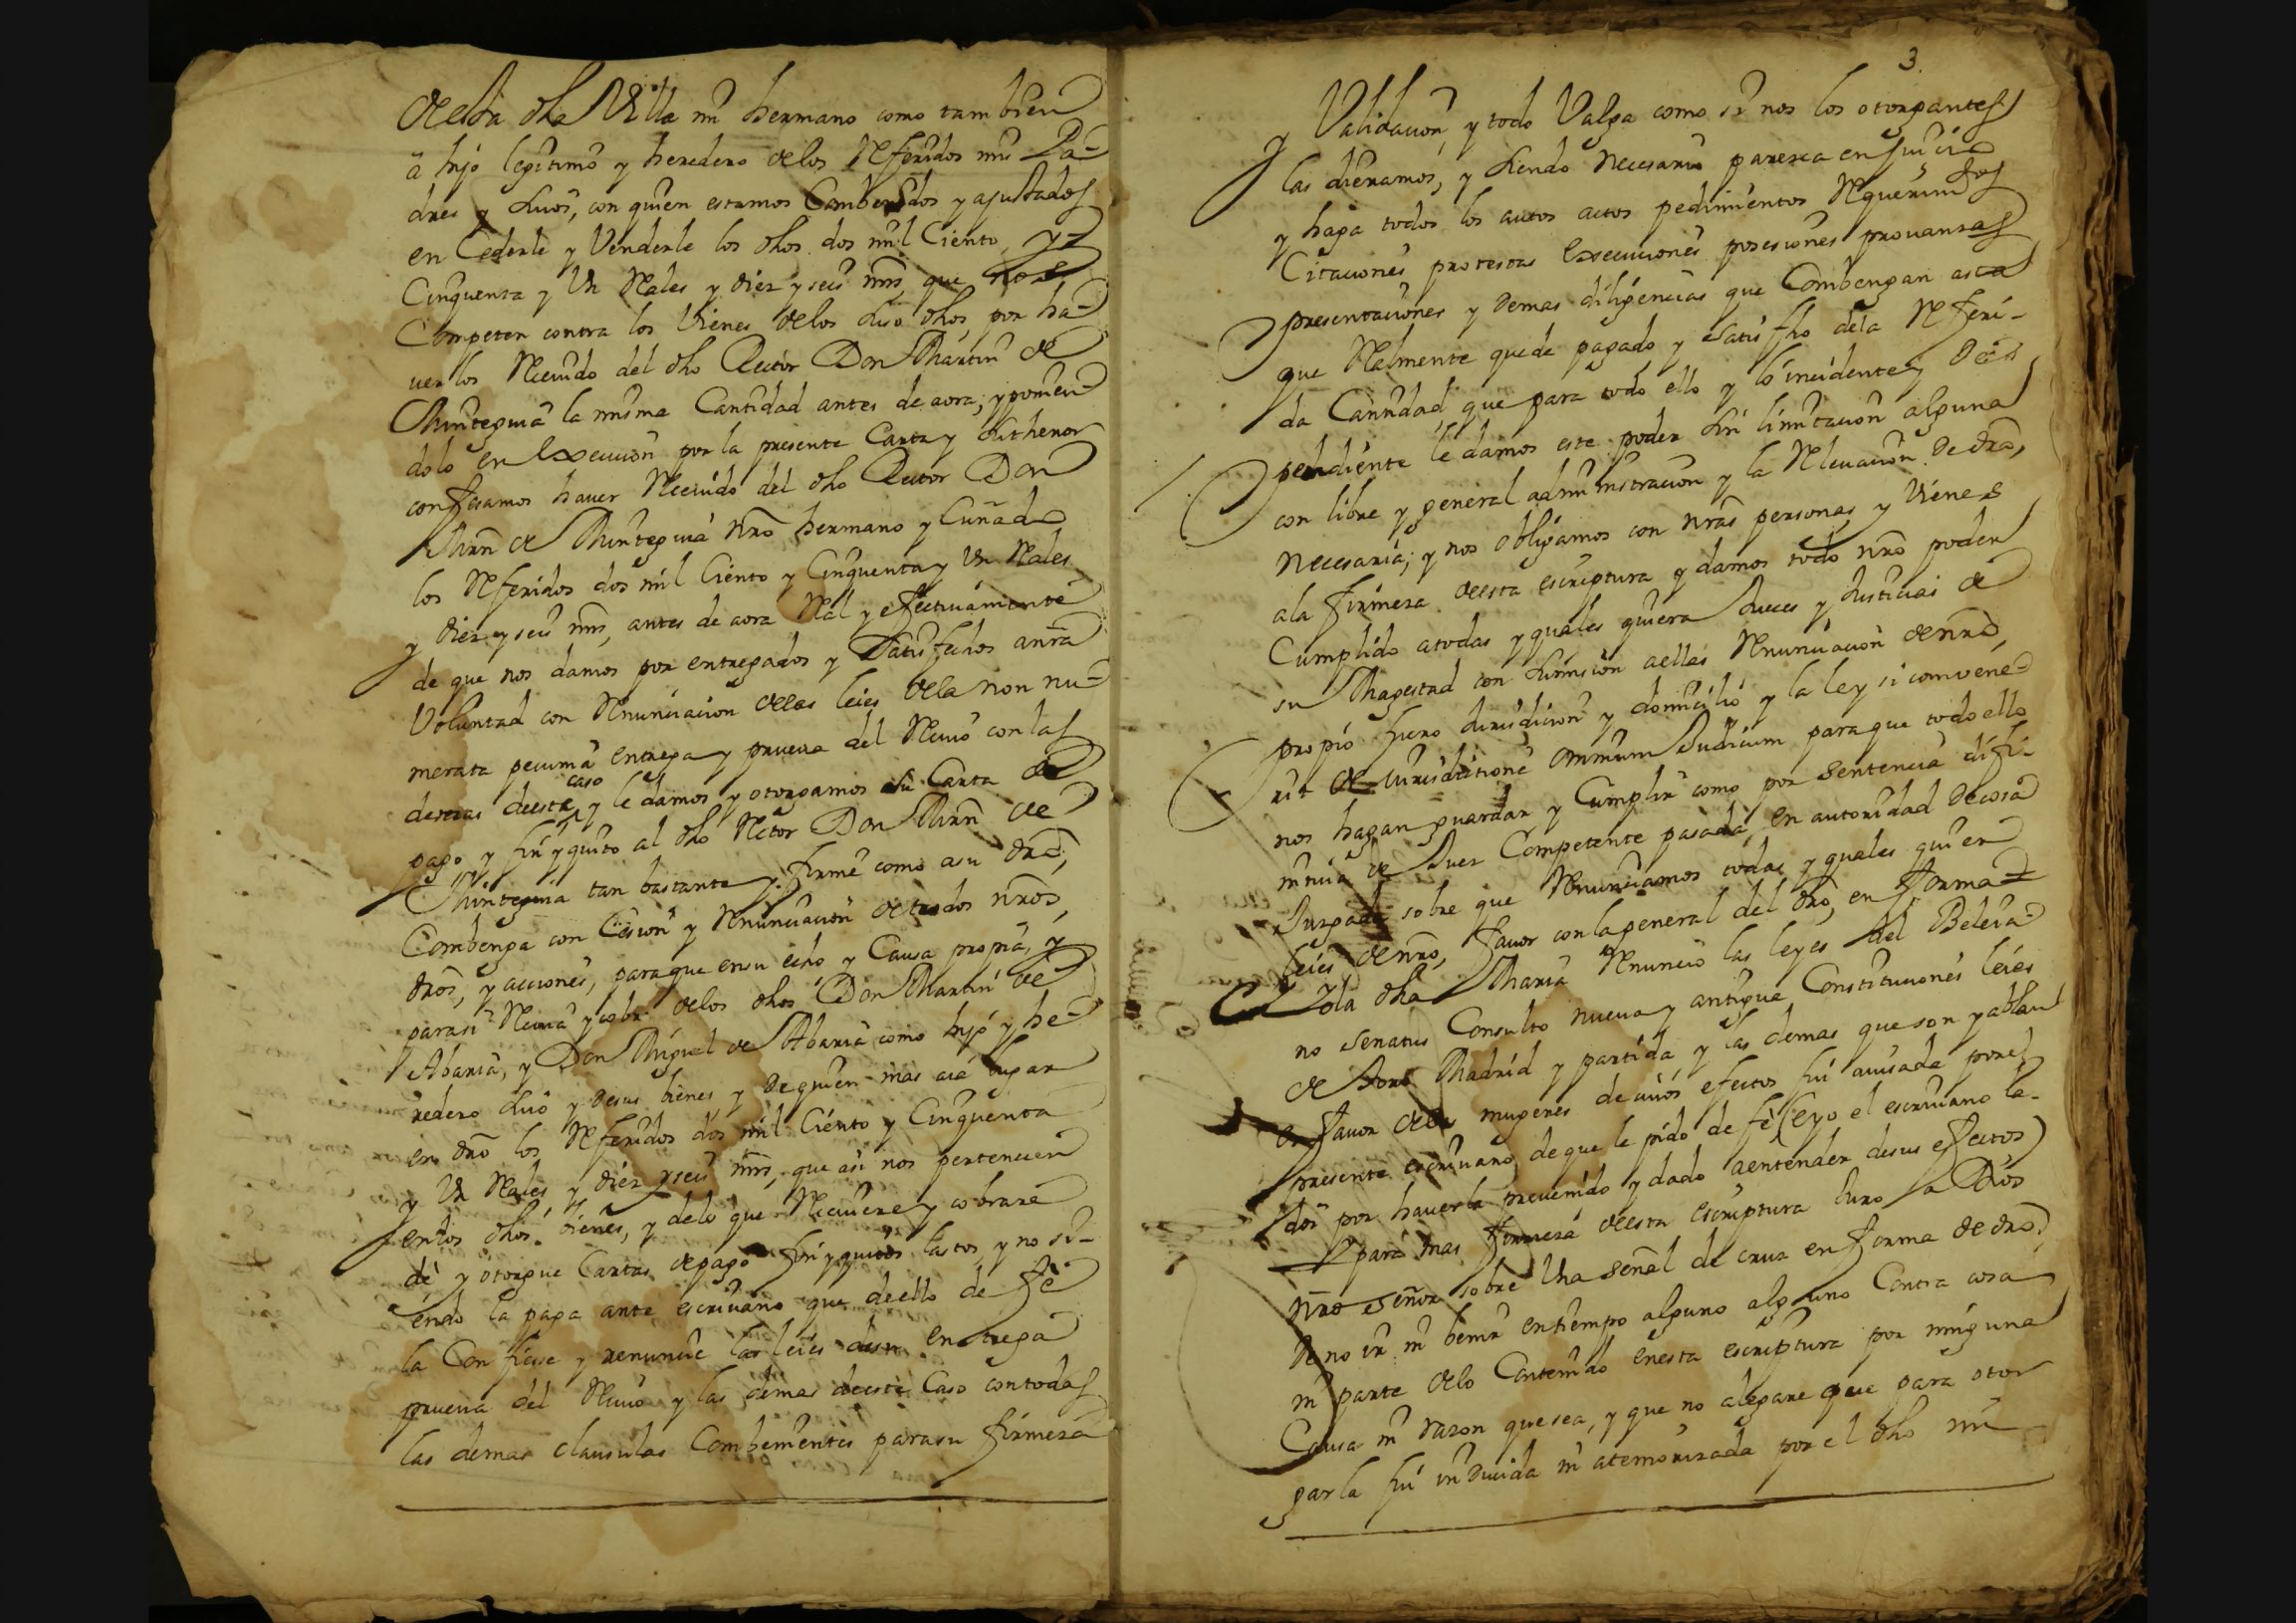 de esta dha Villa mi hermano como tambien
a hijo legitimo y heredero de los Referidos mis Pa-
dres y suios, con quien estamos Combenidos y ajustados
en Cederle y Venderle los dhos dos mil Ciento y
Cinquenta y Un Reales y diez y seis mrs que nos
Competen contra los Vienes de los suso dhos por ha-
uer los Reciuido del dho Rector Don Martin de
Minteguia la misma Cantidad antes de aora; y ponien
dolo en Execucion por la presente Carta y su thenor
confesamos hauer Reciuido del dho Rector Don
Mrn de Minteguia nro hermano y Cuñado
los Referidos dos mil Ciento y Cinquenta y Un Reales
y diez y seis mrs, antes de aora Real y efectiuamente
de que nos damos por entregados y Satisfechos a nra
Voluntad con Renunciacion de las leies de la non nu-
merata pecunia entrega y prueua del Reciuo con las
demas de este caso y le damos y otorgamos su Carta de
pago y fin y quito al dho Retor Don Mrn de
Minteguia tan bastante y firme como a su dro,
Combenga con Cesion y Renunciacion de todos nros,
dros, y acciones, para que en su echo y Causa propia, y
para si Reciua y cobre de los dhos Don Martin de
Abaria, y Don Miguel de Abaria como hijo y he-
redero suio y de sus bienes y de quien mas aia lugar
en dro los Referidos dos mil Ciento y Cinquenta
y Un Reales y diez y seis mrs, que asi nos pertenecen
en los dhos bienes, y de lo que Reciuiere y cobrare
dé y otorgue Cartas de pago fin y quitos lastos, y no si-
endo la paga ante escriuano que de ello de fe
la Confiese y renuncie las leies de su entrega
prueua del Reciuo y las demas de este Caso con todas
las demas clausulas Combenientes para su firmeza
3
y Validacion, y todo Valga como si nos los otorgantes
las dieramos, y siendo Necesario paresca en Juicio
y haga todos los autos actos pedimientos Requerimtos
Citaciones protestas Execuciones posesiones prouanzas
presentaciones y demas diligencias que Combengan asta
que Realmente quede pagado y satisfho de la Referi-
da Cantidad, que para todo ello y lo incidente y de
pendiente le damos este poder sin limitacion alguna
con libre y general administracion y la Releuacion de dro,
necesaria; y nos obligamos con nras personas y Vienes
a la firmeza de esta escriptura y damos todo nro poder
Cumplido a todas y quales quiera Jueces y Justicias de
su Magestad con sumision a ellas Renunciacion de nro,
propio fuero Jurisdicion y domicilio y la ley si convene-
rit de Jurisdictione omnium Judicum para que todo ello
nos hagan guardar y Cumplir como por sentencia difi-
nitiua de Juez Competente pasada en autoridad de cosa
Juzgada sobre que Renunciamos todas y quales quier
leies de nro, fauor con la general del dro, en forma
Y Yo la dha Maria Renuncio las leyes del Beleia-
no senatus Consulto nueua y antigua Constituciones leies
de Toro Madrid y partida y las demas que son y ablan
en fauor de las mugeres de cuios efectos fui auisada por el
presente escriuano, de que le pido de fè (e yo el escriuano la
doi por hauerla preuenido y dado a entender de sus efectos)
Y para mas firmeza de esta escriptura Juro a Dios
nro señor sobre Una señal de cruz en forma de dro,
de no ir ni benir en tiempo alguno alguno Contra cosa
ni parte de lo Contenido en esta escriptura por ninguna
Causa ni razon que sea, y que no alegare que para otor
garla fui inducida ni atemorizada por el dho mi